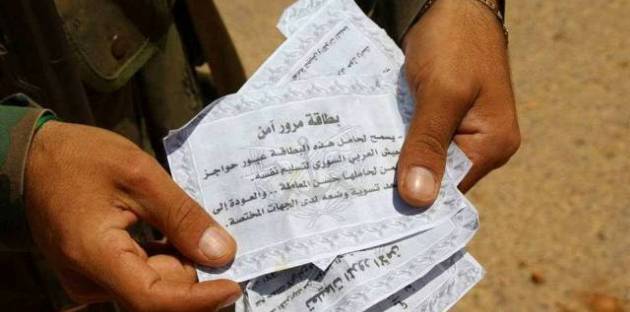 بطاقة مرور آمن
- يسمح لحامل هذه البطاقة عبور حواجز
الجيش العربي السوري لتسليم نفسه.
لحاملها حسن المعاملة .. والعودة إلى
بعد تسوية وضعه لدى الجهات المختصة.
تعليمات المرور الآمن